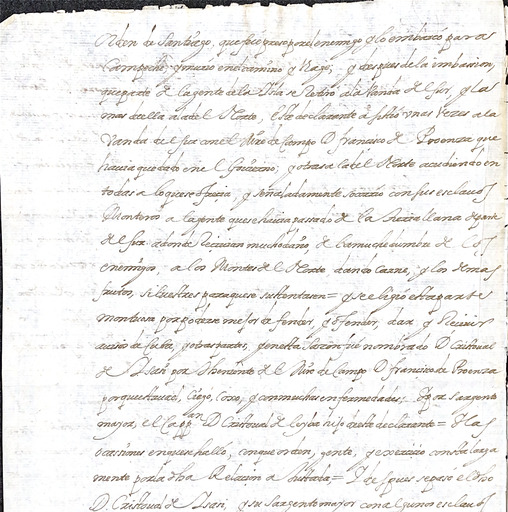 orden de Santiago, que fue preso por el enemigo y lo embarco para
Campeche, y murio en el camino y viage; y despues de la imbasion,
que parte de la gente de la Isla se retiro a la vanda del sur, y la
mas de ella a la del Norte, este declarante asistio unas vezes a la
vanda del sur con el Mro de Campo D francisco de Proenza que
havia quedado en el Govierno; y otras a la del Norte acudiendo en
todas a lo que se ofrecia, y señaladamente socorrio con sus esclavos
Monteros a la gente que se havia passado de la
del sur adonde recivian mucho daño de la muchedumbre de los
enemigos, a los Montes del Norte dando carne, y los demas
frutos, silvestres para que se sustentasen = y se eligio esta parte
montuosa por poderse mejor defender, y ofender, dar y recivir
aviso de Cuba, y otras partes, y en esta sazon fue nombrado D Cristoval
de Isasi por theniente de el Mro de Campo D francisco de Proenza
porque estava ciego, coxo, y con muchas enfermedades; Y por sargento
mayor, el Capp.an D Cristoval de Leyba hijo deste declarante = Y las
ocasiones en que se hallo, con que orden, gente, y exercicio consta larga
mente por la dha Relacion = Y despues se paso el dho
D. Cristoval de Isasi, y su sargento mayor con algunos esclavos